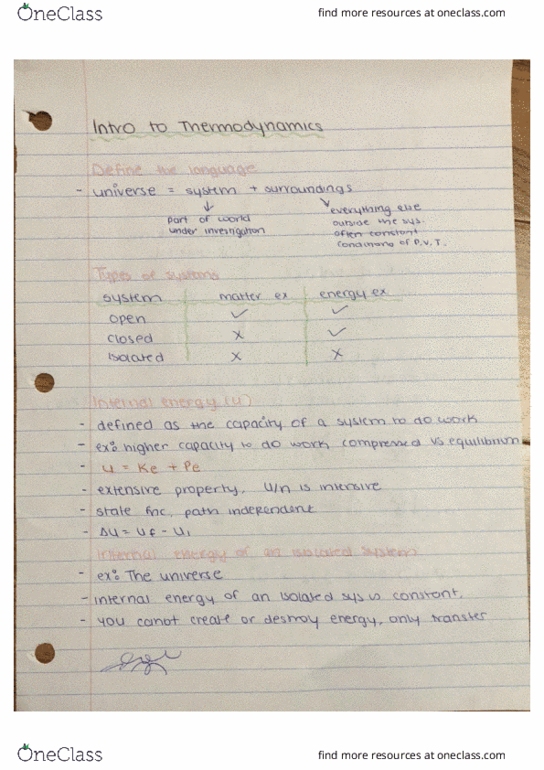 OneClass
find more resources at oneclass.com
Intro to Thermodynamics
Define the language
- universe = system + surroundings
part of world
under investigation
everything else
outside the sys.
often constant
conditions of P, V, T.
Types of systems
system matter ex energy ex
open ✓ ✓
closed x ✓
Isolated x x
Internal energy (U)
- defined as the capacity of a system to do work
- ex: higher capacity to do work, compressed vs equilibrium
- U = Ke + Pe
- extensive property, U/n is intensive
- state fnc, path independent
- ΔU = Uf - Ui
Internal energy of an isolated system
- ex: The universe
- internal energy of an isolated sys is constant.
- you cannot create or destroy energy, only transfer
OneClass
find more resources at oneclass.com